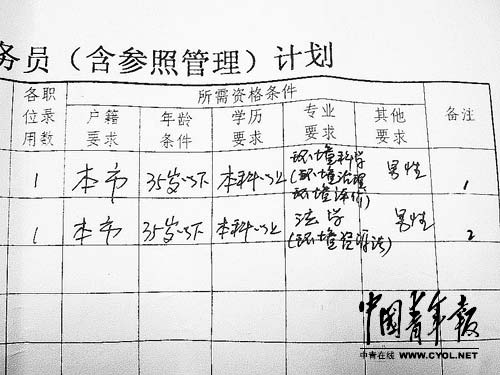 务员（含参照管理）计划
各职位录用数 所需资格条件 备注
户籍要求 年龄条件 学历要求 专业要求 其他要求
1 本市 35岁以下 本科以上 环境科学(环境治理 环境评价) 男性 1
1 本市 35岁以下 本科以上 法学(环境资源法) 男性 2
中国青年报
中青在线 WWW.CYOL.NET